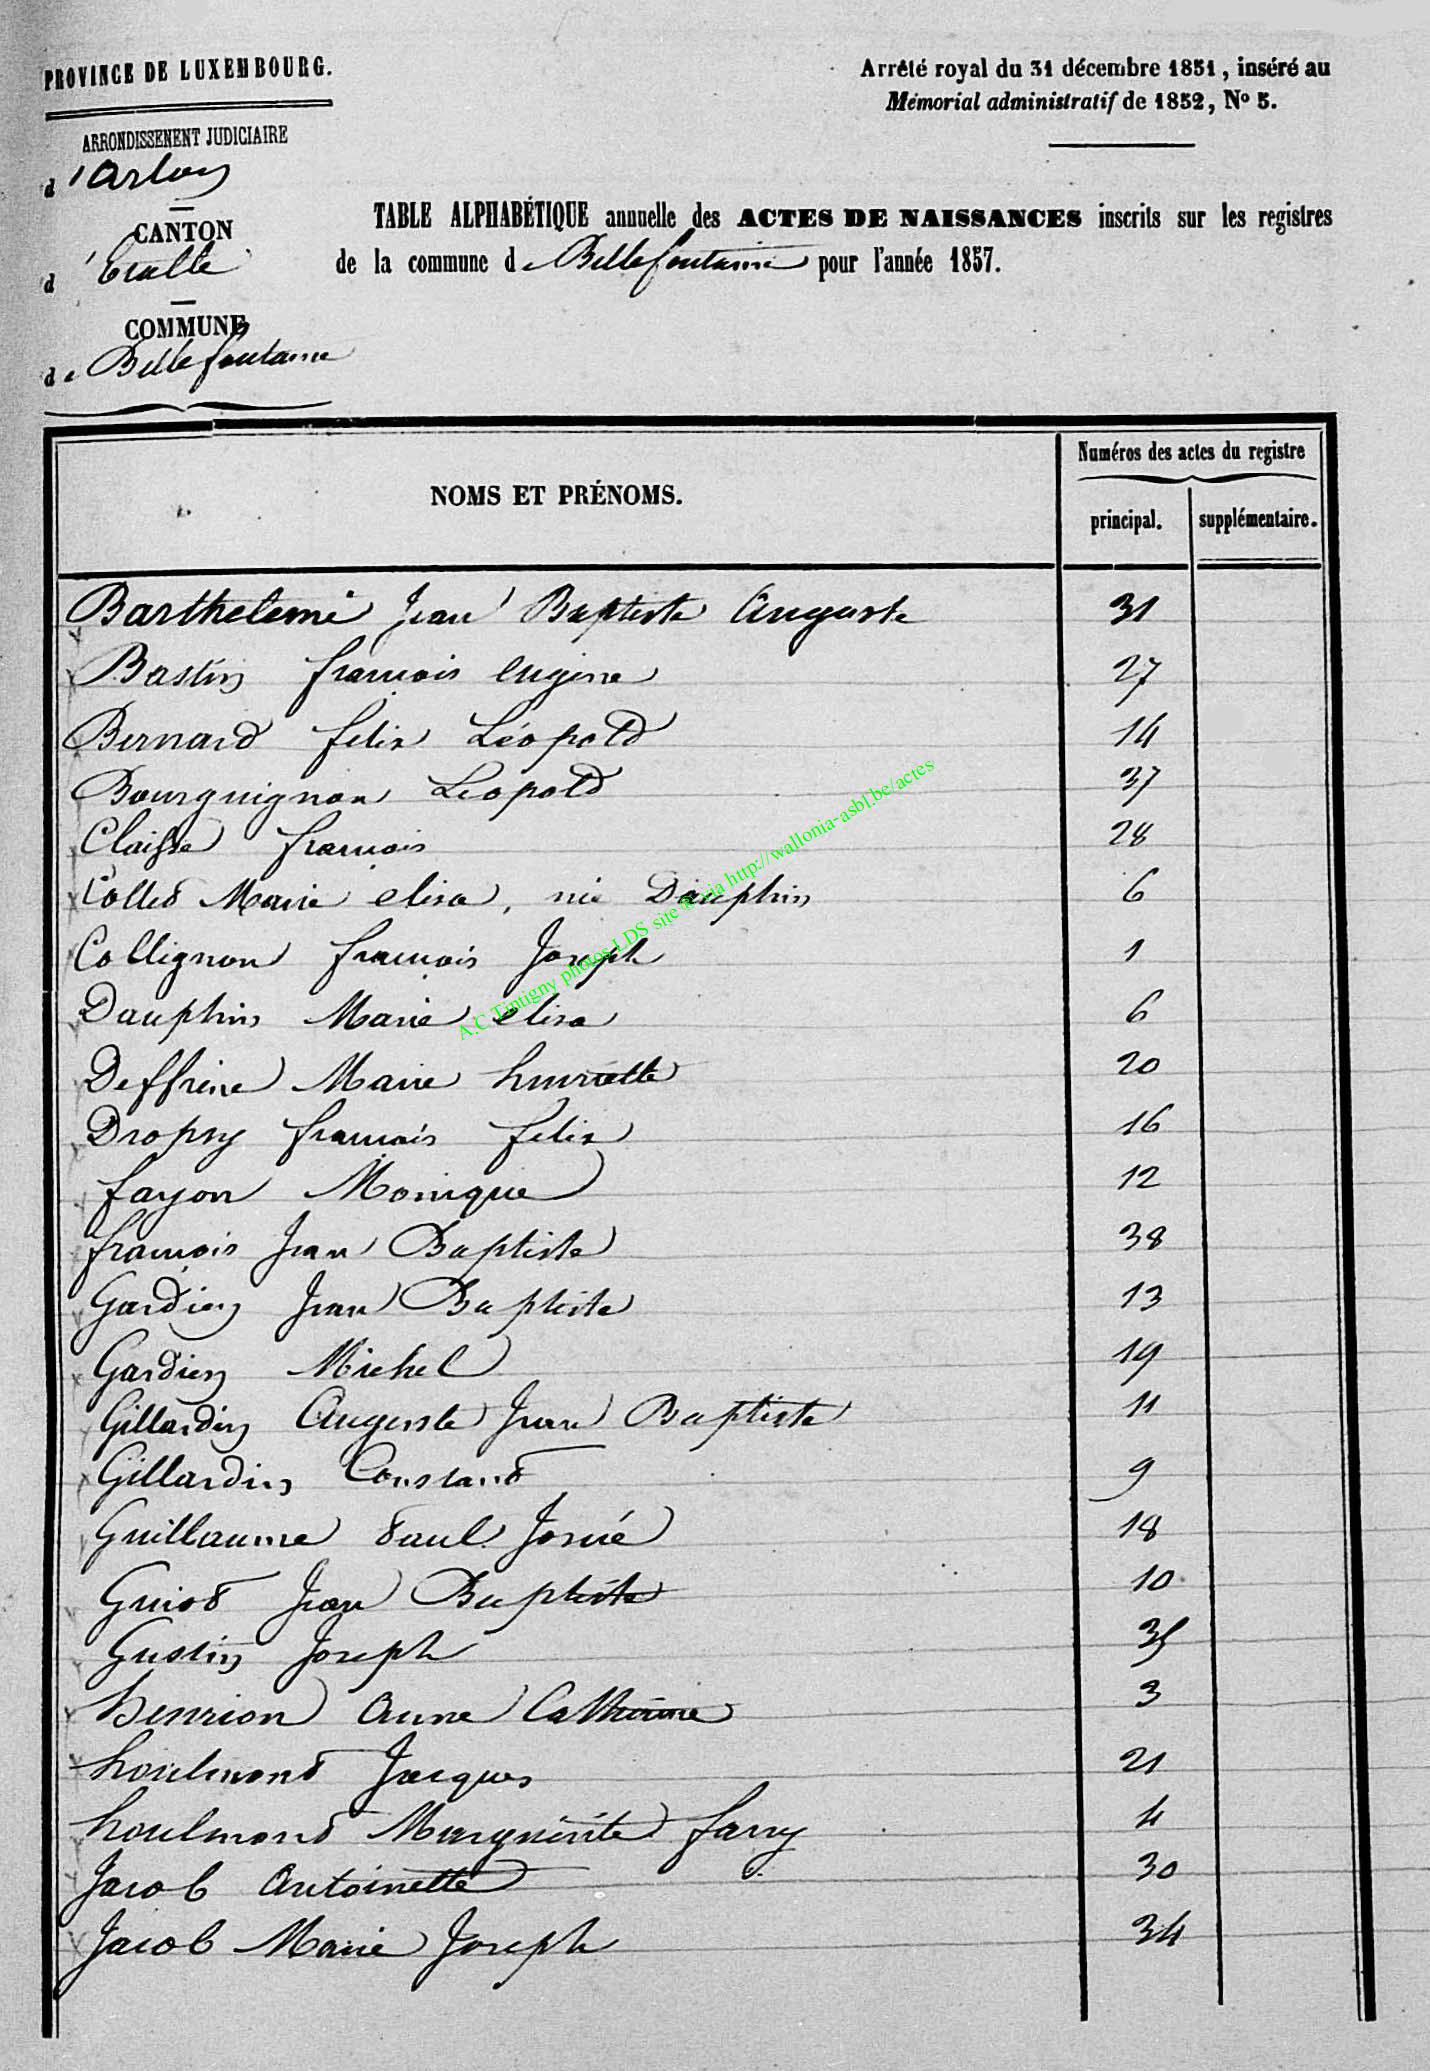 PROVINCE DE LUXEMBOURG.
Arrêté royal du 31 décembre 1851, inséré au
Mémorial administratif de 1852, No 5.
ARRONDISSEMENT JUDICIAIRE
d'Arlon
CANTON
d'Etalle
COMMUNE
de Bellefontaine
TABLE ALPHABÉTIQUE annuelle des ACTES DE NAISSANCES inscrits sur les registres
de la commune de Bellefontaine pour l'année 1857.
NOMS ET PRÉNOMS.
Numéros des actes du registre
principal. supplémentaire.
Barthelemi Jean Baptiste Auguste 31
Bastin françois eugène 27
Bernard felix Léopold 14
Bourguignon Léopold 37
Claisse françois 28
Collet Marie elisa, née Dauphin 6
Collignon françois Joseph 1
Dauphin Marie elisa 6
Deffrène Marie henriette 20
Dropsy françois felix 16
fayon Monique 12
françois Jean Baptiste 38
Gardien Jean Baptiste 13
Gardien Michel 19
Gillardin Auguste Jean Baptiste 11
Gillardin Constant 9
Guillaume Paul Josué 18
Guiot Jean Baptiste 10
Gustin Joseph 35
henrion Anne Catherine 3
houlmont Jacques 21
houlmont Marguérite fany 4
Jacob Antoinette 30
Jacob Marie Joseph 34
A.C Tintigny photos LDS site @ via http://wallonia-asbl.be/actes